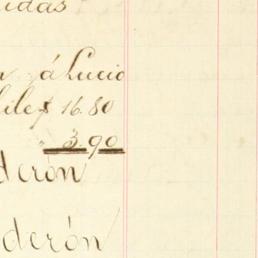 idas
n á Lucio
hile $ 16.80
3.90
derón
derón